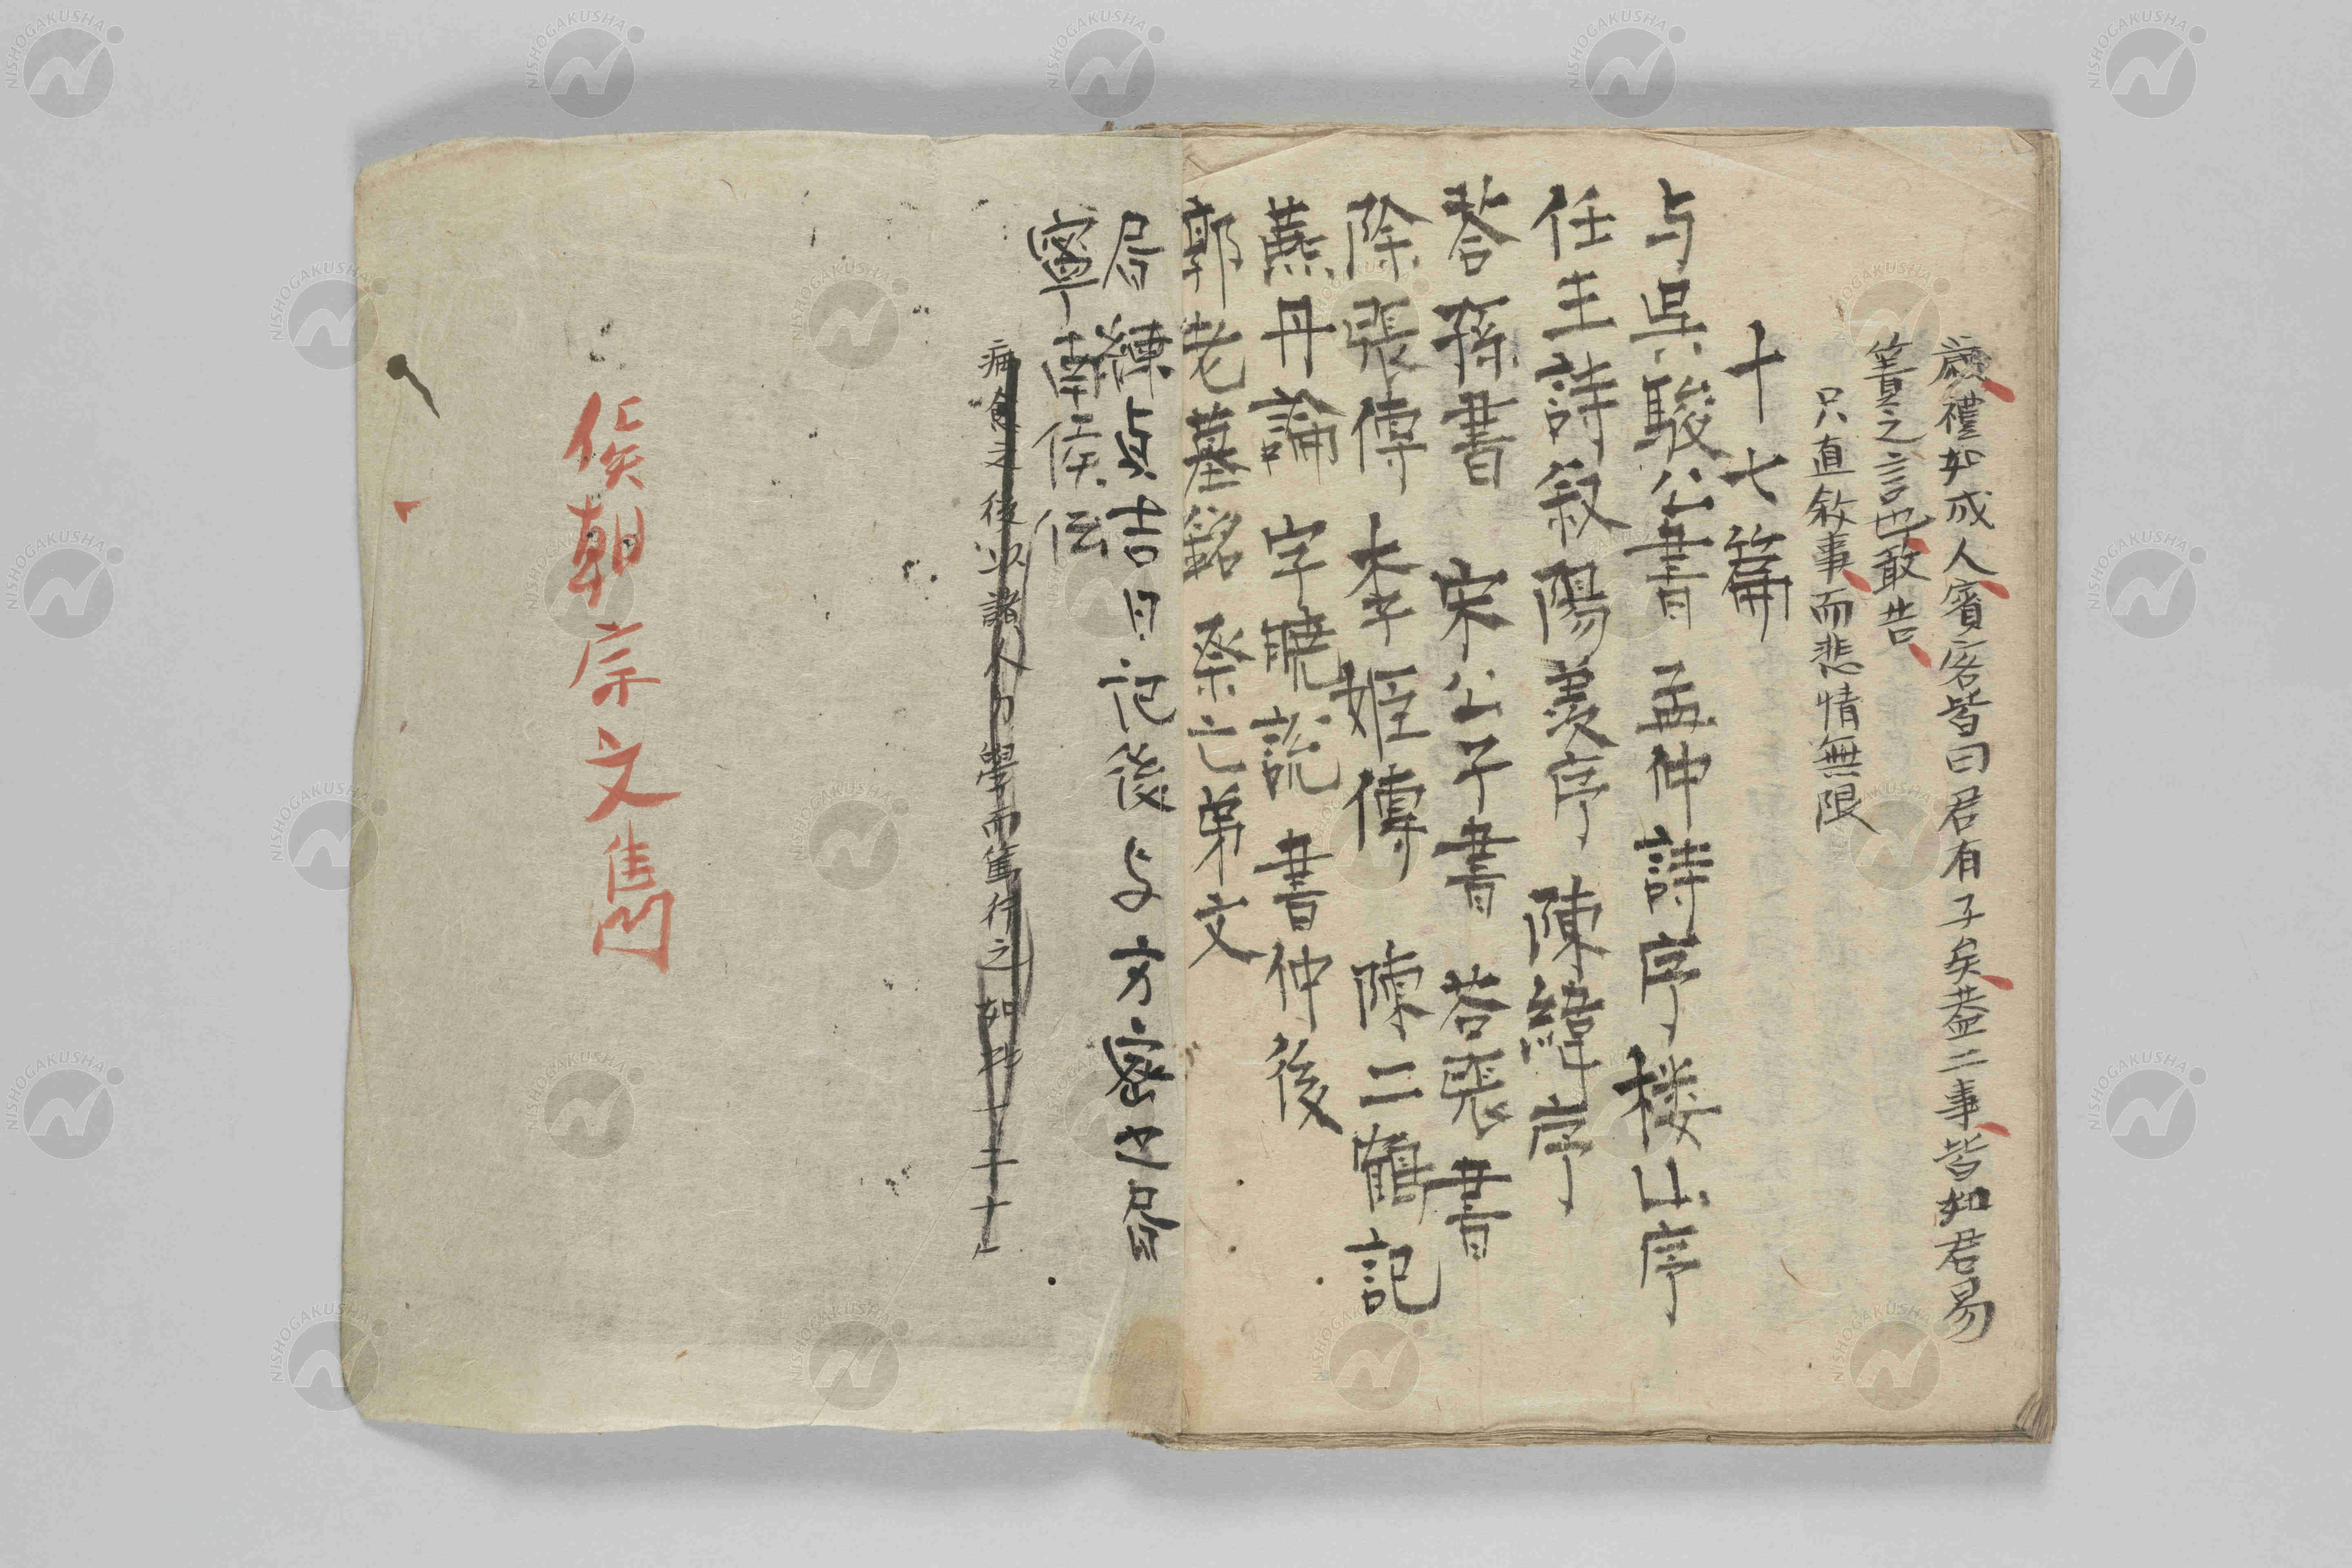 襒禮如成人賓客皆曰君有子矣盖二事皆如君易
簀之言也敢告
只直敘事而悲情無限
十七篇
与吳駿公書 孟仲詩序 楼山序
任王詩叙 陽羨序 陳緯序
荅孫書 宋公子書 荅張書
除張傳 李姬傳 陳二鶴記
燕丹論 字曉説 書仲後
郭老墓銘 祭亡弟文
練貞吉日记後 与方密之
寧南侯伝
之後 諸人力學而篤行之如 二十
侯朝宗文雋
NISHOGAKUSHA